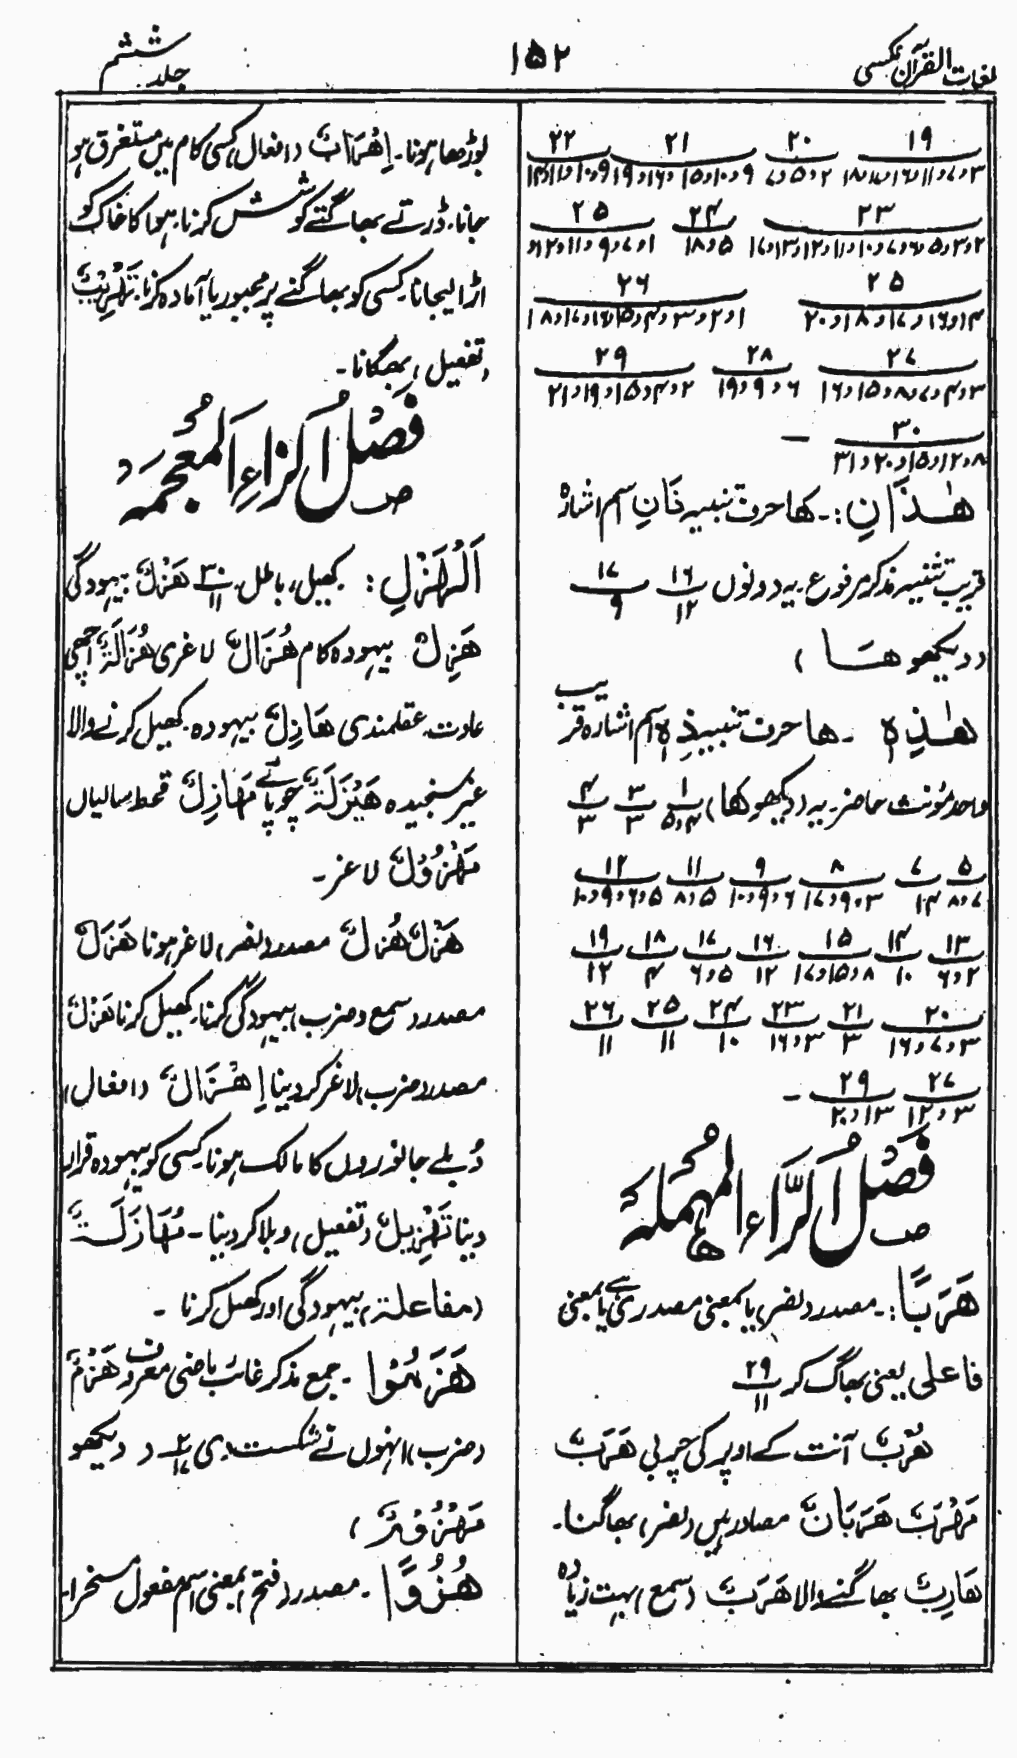 لغات القرآن عکسی
۱۵۲
جلد ششم
۱۹ ۲۰ ۲۱ ۲۲
۳و۷و۱۱و۱۶و۱۷و۱۸ ۲و۵و۷ ۹و۱۰و۱۵و۱۶و۱۹ ۹و۱۰و۱۱و۱۴
۲۳ ۲۴ ۲۵
۲و۳و۵و۶و۷و۱۰و۱۱و۱۲و۱۳و۱۷ ۵و۱۸ ۱و۷و۹و۱۱و۱۲و
۲۵ ۲۶
۱۴و۱۶و۱۷و۱۸و۲۰ ۱و۲و۳و۴و۱۵و۱۶و۱۷و۱۸
۲۷ ۲۸ ۲۹
۳و۴و۷و۸و۱۵و۱۶ ۶و۹و۱۹ ۲و۴و۱۵و۱۹و۲۱
۳۰ ۔
۸و۱۲و۱۵و۲۰و۳۱
هٰذَانِ:۔ ها حرف تنبیہ ذَانِ اسم اشارہ
قریب تثنیہ مذکر مرفوع۔ یہ دونوں ۱۶/۱۲ ۱۷/۹
(دیکھو هٰسَا)
هٰذِهٖ ۔ ها حرف تنبیہ ذِهٖ اسم اشارہ قریب
واحد مؤنث حاضر۔ یہ (دیکھو ها) ۱/۴و۵ ۳/۳ ۴/۳
۵ ۷ ۸ ۹ ۱۱ ۱۲
۷و۸ ۱۴ ۳و۹و۱۷ ۶و۹و۱۰ ۵و۸ ۵و۶و۹و۱۰
۱۳ ۱۴ ۱۵ ۱۶ ۱۷ ۱۸ ۱۹
۲و۶ ۱۰ ۸و۱۵و۱۷ ۱۲ ۵و۶ ۴ ۱۲
۲۰ ۲۱ ۲۳ ۲۴ ۲۵ ۲۶
۳و۷و۱۶ ۳ ۳و۱۶ ۱۰ ۱۱ ۱۱
۲۷ ۲۹ ۔
۳و۱۲ ۱۳و۲۰
فصل الرّاء المهملة
هَرَبًا:۔ مصدر (نصر) یا بمعنی مصدری ہے یا بمعنی
فاعلی یعنی بھاگ کر ۲۹/۱۱
هُرْبٌ آنت کے اوپر کی چربی هَرَبٌ
مَهْرَبٌ هَرَبَانٌ مصادر ہیں (نصر) بھاگنا۔
هَارِبٌ بھاگنے والا هَرَبٌ (سمع) بہت زیادہ
بوڑھا ہونا۔ اِهْرَابٌ (افعال) کسی کام میں مستغرق ہو
جانا۔ ڈرتے بھاگتے کوشش کرنا۔ ہوا کا خاک کو
اڑا لیجانا۔ کسی کو بھاگنے پر مجبور یا آمادہ کرنا۔ تَهْرِيبٌ
(تفعیل) بھگانا۔
فصل الزاء المعجمة
اَلْهَزْلِ: کھیل، باطل ۳۰/۱۱ هَزْلٌ بیہودگی
هَزِلٌ بیہودہ کام هُزَالٌ لاغری هُزَالَةٌ اچھی
عادت۔ عقلمندی هَازِلٌ بیہودہ کھیل کرنے والا
غیر سنجیدہ هَيْزَلَةٌ چوپائے مَهَازِلٌ قحط سالیاں
مَهْزُوْلٌ لاغر۔
هَزْلٌ هُزَالٌ مصدر (نصر) لاغر ہونا هَزَلَ
مصدر (سمع و ضرب) بیہودگی کرنا۔ کھیل کرنا هَزْلٌ
مصدر (ضرب) لاغر کر دینا اِهْزَالٌ (افعال)
دُبلے جانوروں کا مالک ہونا کسی کو بیہودہ قرار
دینا تَهْزِيلٌ (تفعیل) دبلا کر دینا۔ مُهَازَلَةٌ
(مفاعلة) بیہودگی اور کھیل کرنا ۔
هَزَمُوْا ۔ جمع مذکر غائب ماضی معروف هَزْمٌ
(ضرب) انہوں نے شکست دی ۲/۱۷ (دیکھو
مَهْزُوْمٌ)
هُزُوًا ۔ مصدر (فتح) بمعنی اسم مفعول مسخرا۔